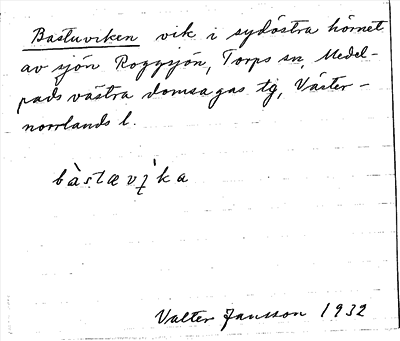 Bastuviken vik i sydöstra hörnet
av sjön Roggsjön, Torps sn, Medel-
pads västra domsagas tg, Väster-
norrlands l.
bàstævi̖ka
Valter Jansson 1932